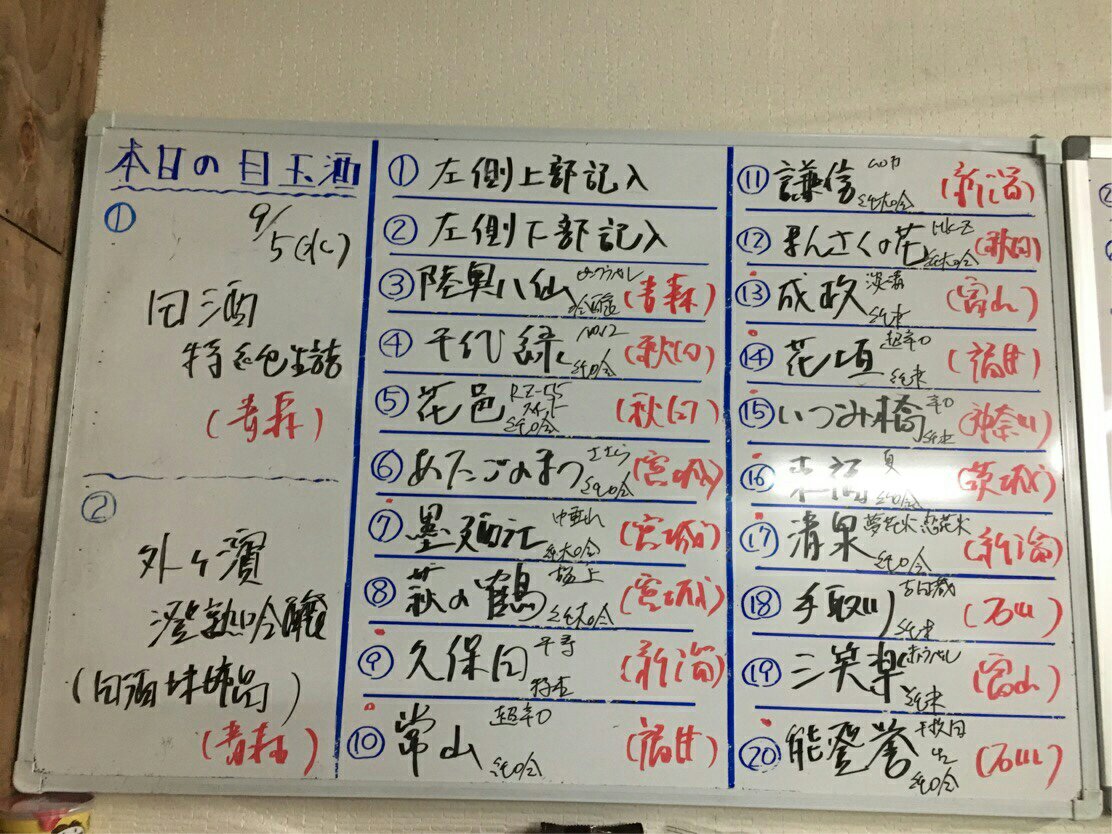 本日の目玉酒
①
9/5(水)
田酒
特純生詰
(青森)
②
外ヶ濱
澄熟吟醸
(田酒姉妹品)
(青森)
① 左側上部記入
② 左側下部記入
③ 陸奥八仙 ひやおろし (青森)
④ 千代緑 No.12 純吟 (秋田)
⑤ 花邑 純吟 (秋田)
⑥ あたごのまつ ささら 純吟 (宮城)
⑦ 墨廼江 中垂れ 純大吟 (宮城)
⑧ 萩の鶴 極上 純大吟 (宮城)
⑨ 久保田 千寿 (新潟)
⑩ 常山 超辛口 純吟 (福井)
⑪ 謙信 純大吟 (新潟)
⑫ まんさくの花 純大吟 (秋田)
⑬ 成政 純米 (富山)
⑭ 花垣 超辛口 純米 (福井)
⑮ いづみ橋 辛口 純米 (神奈川)
⑯ 来福 夏 純吟 (茨城)
⑰ 清泉 純吟 (新潟)
⑱ 手取川 純米 (石川)
⑲ 三笑楽 純米 (富山)
⑳ 能登誉 千枚田 純吟 (石川)